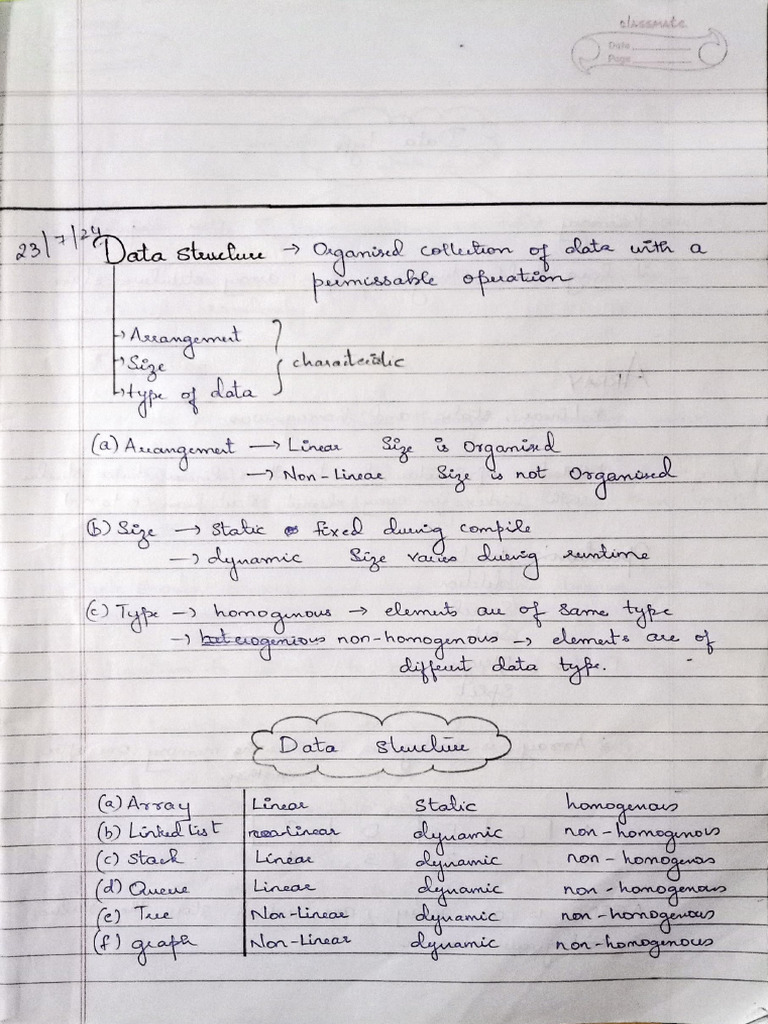 classmate
Date
Page
23/7/24
Data structure → Organised collection of data with a
permissable operation
→ Arrangement
→ Size
→ type of data
characteristic
(a) Arrangement → Linear Size is Organised
→ Non-Linear Size is not Organised
(b) Size → Static fixed during compile
→ dynamic Size varies during runtime
(c) Type → homogenous → elements are of same type
→ heterogenious non-homogenous → elements are of
different data type.
Data structure
(a) Array Linear Static homogenous
(b) Linked list linear dynamic non-homogenous
(c) Stack Linear dynamic non-homogenos
(d) Queue Linear dynamic non-homogenous
(e) Tree Non-Linear dynamic non-homogenous
(f) graph Non-Linear dynamic non-homogenous